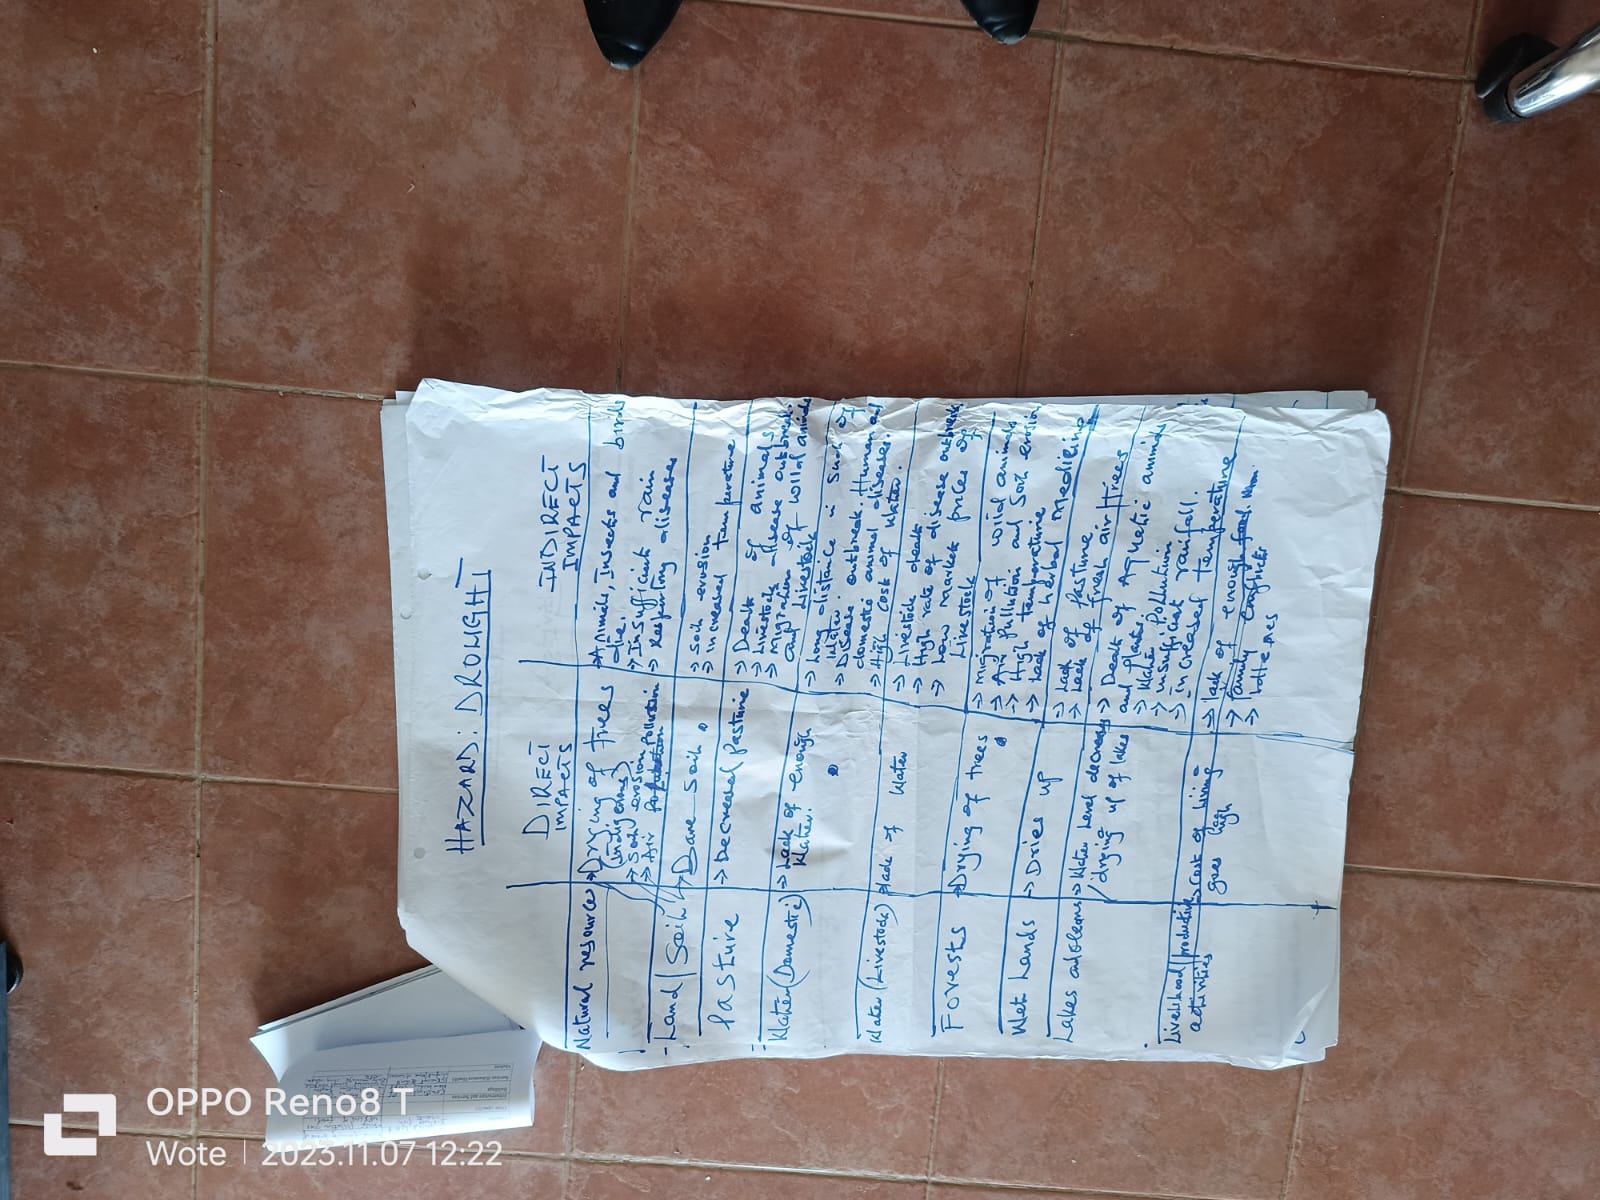 HAZARD: DROUGHT
DIRECT IMPACTS
INDIRECT IMPACTS
Natural resources
→ Drying of trees
(indigenous)
→ Soil erosion Pollution
→ Air
→ Animals, Insects and birds
die.
→ Insufficient rain
→ diseases
Land / Soil
→ Bare Soil
→ Soil erosion
→ Increased temperature
Pasture
→ Decreased Pasture
→ Death of animals
→ Livestock disease outbreak
→ Migration of wild animals
and Livestock
Water (Domestic)
→ Lack of enough
Water.
→ Long distance in Such of
Water
→ Disease outbreak. Human and
domestic animal diseases.
→ High Cost of Water.
Water (Livestock)
→ Lack of Water
→ Livestock death
→ High rate of disease outbreak
→ Low market prices of
Livestock
Forests
→ Drying of trees
→ Migration of wild animals
→ Air Pollution and Soil erosion
→ High temperature
→ Lack of herbal medicine
Wet Lands
→ Dries up
→ Lack of Pasture
→ Lack of fresh air / trees
Lakes
→ Water level decreases
/ drying up of lakes
→ Death of Aquatic animals
and plants.
→ Water Pollution
→ insufficient rainfall.
→ increased temperature
Livelihood / productive
activities
→ Cost of Living
goes high
→ Lack of enough food
→ Family Conflicts
OPPO Reno8 T
Wote | 2023.11.07 12:22